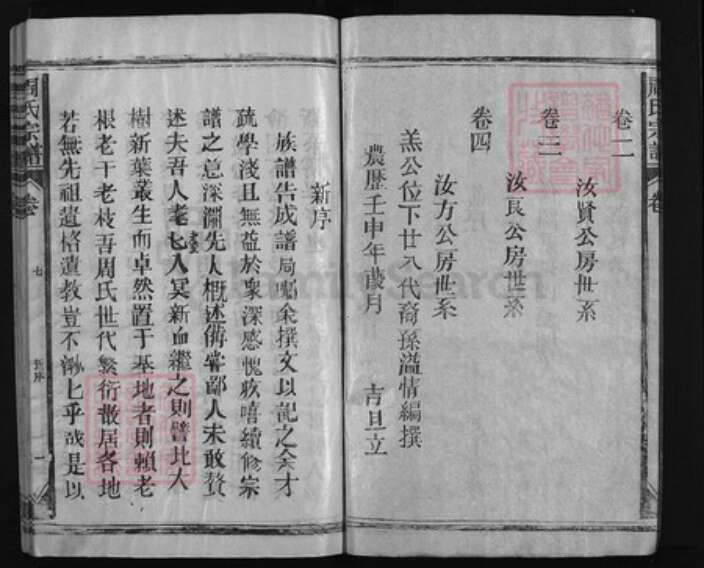 周氏宗譜
卷二
汝賢公房世系
卷三
汝良公房世系
卷四
汝方公房世系
羔公位下廿八代裔孫溢情編撰
農歷壬申年 月 吉旦立
新序
族譜告成譜局囑余撰文以記之余才
疏學淺且無益於衆深感愧疚嘻續修宗
譜之总深淵先人概述備甞鄙人未敢贅
述夫吾人老 七入冥新血繼之則譬北大
樹新葉叢生而卓然置于基地者則賴老
根老干老枝吾周氏世代繁衍散居各地
若無先祖遺格遺教豈不 七乎哉是以
周氏宗譜
卷
七
新序
一
FamilySearch